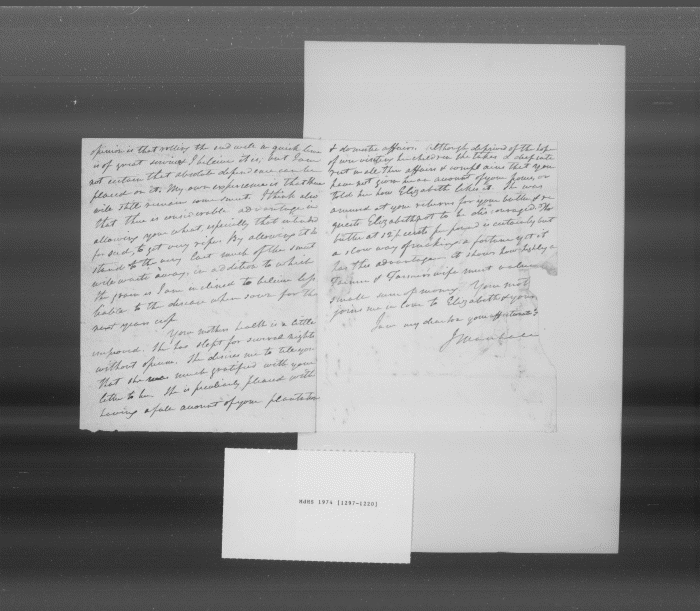 opinion is that rolling the seed in quick lime
is of great service I believe it is, but I am
not certain that absolute dependence can be
placed on it. My own experience is that there
will still remain some smut. I think also
that there is considerable advantage in
allowing your wheat especially that intended
for seed, to get very ripe. By allowing it to
stand to the very last much of the smut
will waste away, in addition to which
the grain is I am inclined to believe less
liable to the disease when sown for the
next years crop
Your mothers health is a little
improved. She has slept for several nights
without opium. She desires me to tell you
that she was much gratified with your
letter to her. She is peculiarly pleased with
having a full account of your plantation
& domestic affairs. Although deprived of the hope
of ever visiting her children she takes a deep interest
in all their affairs & complains that you
have not given her an account of your
told her how Elizabeth likes it. She was
amused at your returns for your butter & re
quests Elizabeth not to be discouraged. The
butter at 12½ cents per pound is certainly but
a slow way of making a fortune yet it
has this advantage. It shows how highly a
Farmer & Farmers wife must value
small sums of money. Your mother
joins me in love to Elizabeth & you
I am my dear son your affectionate
MdHS 1974 [1297-1220]